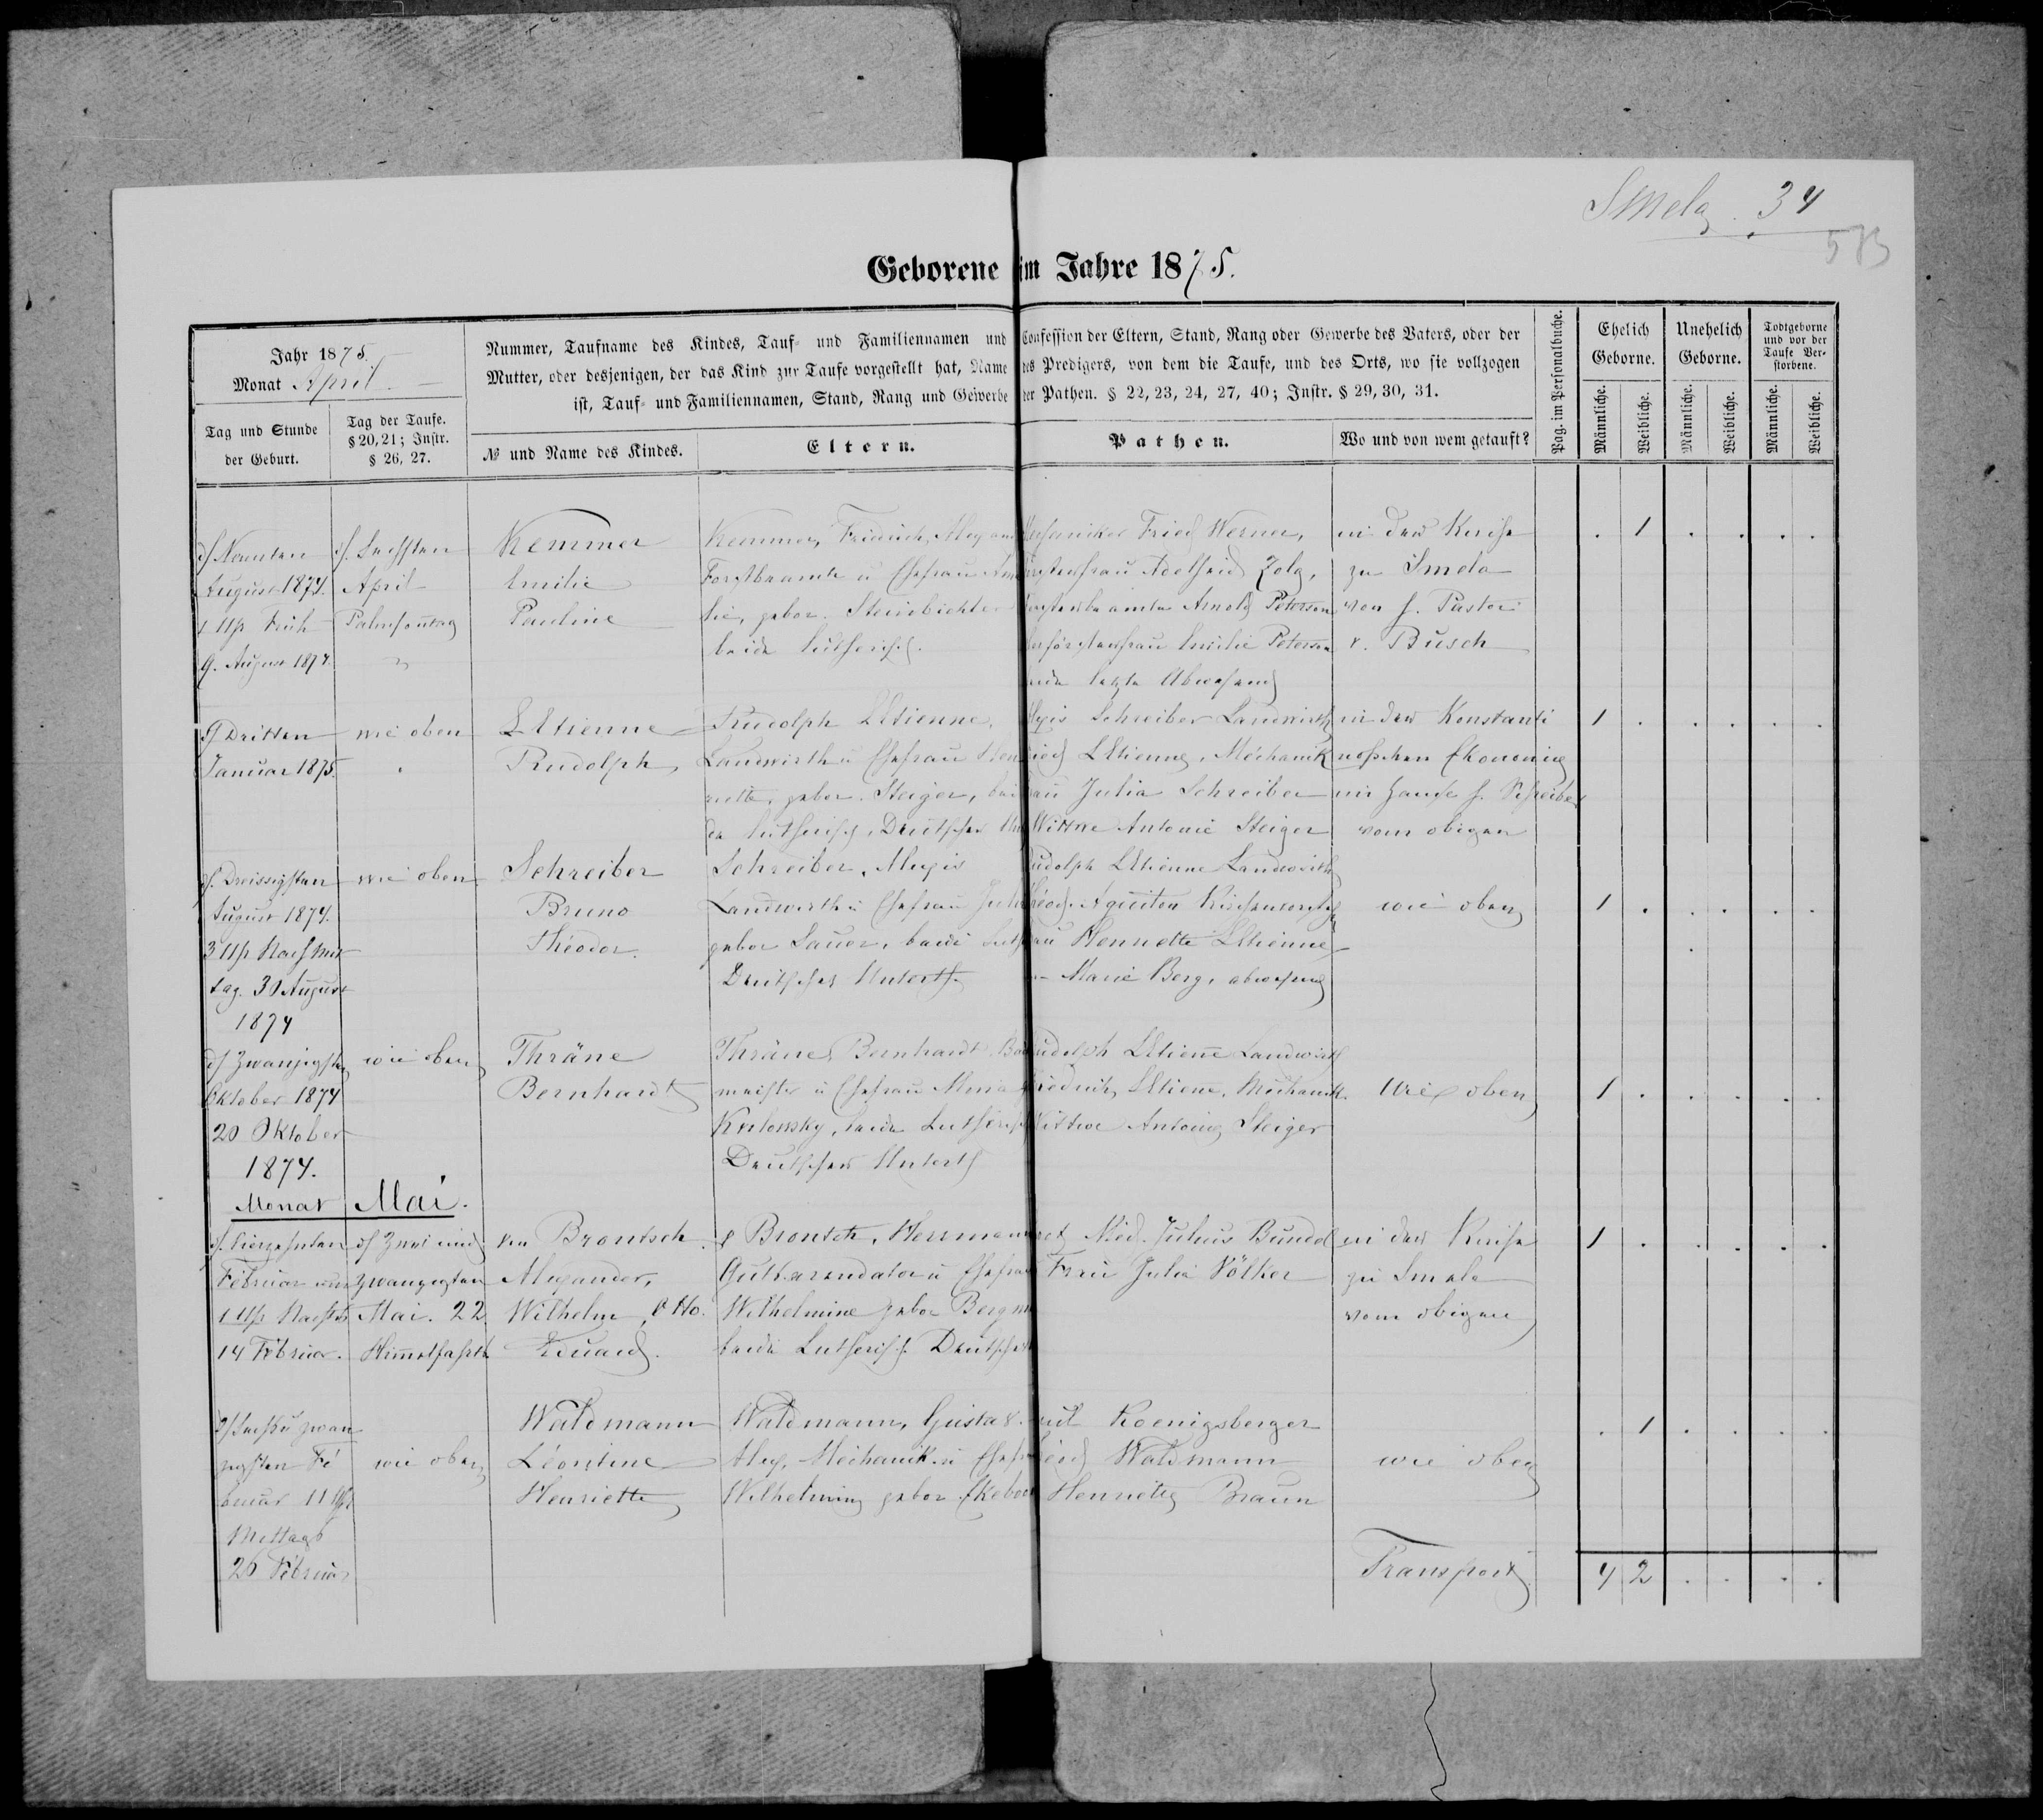 Smela. 34
573
Geborene im Jahre 1875.
Jahr 1875.
Monat April
Tag und Stunde der Geburt.
Tag der Taufe. § 20, 21; Instr. § 26, 27.
Nummer, Taufname des Kindes, Tauf- und Familiennamen und Confession der Eltern, Stand, Rang oder Gewerbe des Vaters, oder der
Mutter, oder desjenigen, der das Kind zur Taufe vorgestellt hat, Name des Predigers, von dem die Taufe, und des Orts, wo sie vollzogen
ist, Tauf- und Familiennamen, Stand, Rang und Gewerbe der Pathen. § 22, 23, 24, 27, 40; Instr. § 29, 30, 31.
№ und Name des Kindes.
Eltern.
Pathen.
Wo und von wem getauft?
Pag. im Personalbuche.
Ehelich Geborne.
Unehelich Geborne.
Todtgeborne und vor der Taufe Verstorbene.
Männliche. Weibliche. Männliche. Weibliche. Männliche. Weibliche.
d. Neunten
August 1874.
1 Uhr Früh
9. August 1874.
d. Sechsten
April
Palmsonntag
Kemmer
Emilie
Pauline
Kemmer, Friedrich
Forstbeamte u Ehefrau
lie, gebor. Steinbichter
beide lutherisch.
Friedr Werner,
Adelheid Zola,
Arnold Peterson
Emilie Peterson
letzte Abwesend
in der Kirche
zu Smela
von H. Pastor
v. Busch
. 1 . . . .
d Dritten
Januar 1875.
wie oben
LEtienne
Rudolph
Rudolph LEtienne,
Landwirth u Ehefrau Hen
riette, gebor. Steiger, bei
de lutherisch, Deutscher Unt
Schreiber Landwirth
LEtienne, Mechanik
Julia Schreiber
Wittwe Antonie Steiger
in der Konstanti
nofschen Ekonomie
im Hause H. Schreiber
vom obigen
1 . . . . .
d. Dreissigsten
August 1874.
3 Uhr Nachmit
tag. 30 August
1874
wie oben
Schreiber
Bruno
Théodor.
Schreiber, Alexis
Landwirth u Ehefrau Juli
gebor Sauer, beide Luth
Deutscher Unterth
Rudolph LEtienne Landwirth
Henriette LEtienne
Marie Berg, abwesend
wie oben
1 . . . . .
d Zwanzigsten
Oktober 1874
20 Oktober
1874.
wie oben
Thräne
Bernhardt
Thräne Bernhardt
meister u Ehefrau Maria
beide Lutherisch
Deutscher Unterth
Rudolph LEtienne Landwirth
Friedrich LEtiene, Mechanik.
Wittwe Antonie Steiger
Wie oben
1 . . . . .
Monat Mai.
d. Vierzehnten
Februar um
1 Uhr Nachts
14 Februar.
d Zwei und
zwanzigsten
Mai. 22.
Himmelfahrt
von Brontsch
Alexander,
Wilhelm, Otto.
Eduard.
v Brontsch, Herrmann
Gutsarendator u Ehefrau
Wilhelmine gebor Bergm
beide Lutherisch Deutsche
Med. Julius Bundel
Frau Julia Völker
in der Kirche
zu Smela
vom obigen
1 . . . . .
d Sechs u zwan
zigsten Fe
bruar 11 Uhr
Mittags
26 Februar
wie oben
Waldmann
Léontine
Henriette
Waldmann, Gustav
Alex, Mechanik. u Ehefr
Wilhelmine gebor
Koenigsberger
Waldmann
Henriette Braun
wie oben
. 1 . . . .
Transport 4 2 . . . .